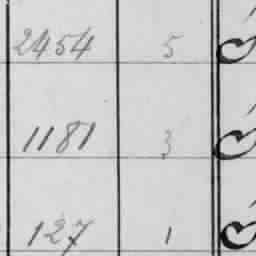 2454 5
1181 3
127 1